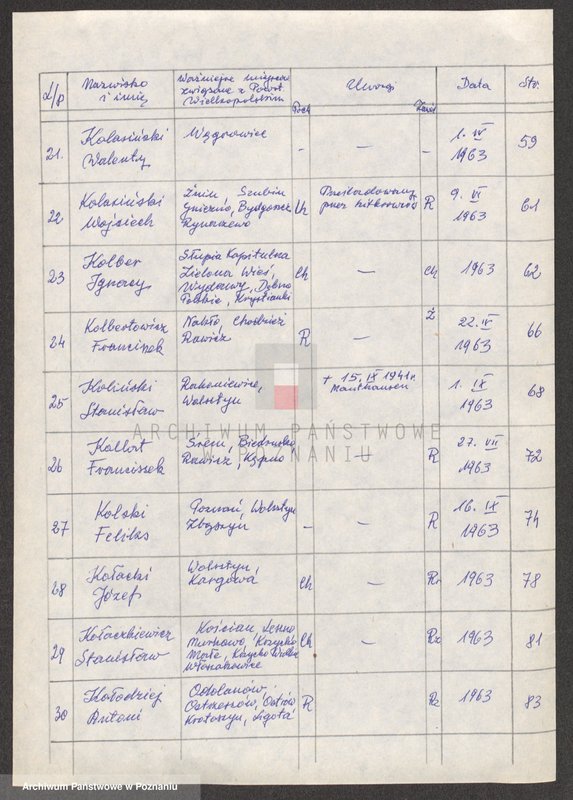 L/p Nazwisko i imię Ważniejsze miejsca związane z Powst. Wielkopolskim Poch Uwagi Zawód Data Str.
21. Kolasiński Walenty Wągrowiec - — - 1. IV 1963 59
22 Kolasiński Wojciech Żnin, Szubin Gniezno, Bydgoszcz Rynarzewo Prześladowany przez hitlerowców R 9. VI 1963 61
23 Kolber Ignacy Słupia Kapitulna Zielona Wieś, Wydawy, Dębno Polskie, Krystianki Ch — Ch 1963 62
24 Kolbertowicz Franciszek Nakło, Chodzież Rawicz R — Ż 22. IV 1963 66
25 Koliński Stanisław Rakoniewice, Wolsztyn + 15. IX 1941 r. Mauthausen 1. IX 1963 68
26 Franciszek Śrem, Biedrusko Rawicz, Kępno — R 27. VII 1963 72
27 Kolski Feliks Poznań, Wolsztyn Zbąszyń - — R 16. IX 1963 74
28 Kołacki Józef Wolsztyn Kargowa Ch — Rr 1963 78
29 Kołaczkiewicz Stanisław Kościan Leszno Murkowo, Krzycko Małe, Krzycko Wielkie Włoszakowice Ch — Rz 1963 81
30 Kołodziej Antoni Odolanów Ostrzeszów, Ostrów Krotoszyn, Ligota R Rz 1963 83
ARCHIWUM PAŃSTWOWE
W POZNANIU
Archiwum Państwowe w Poznaniu